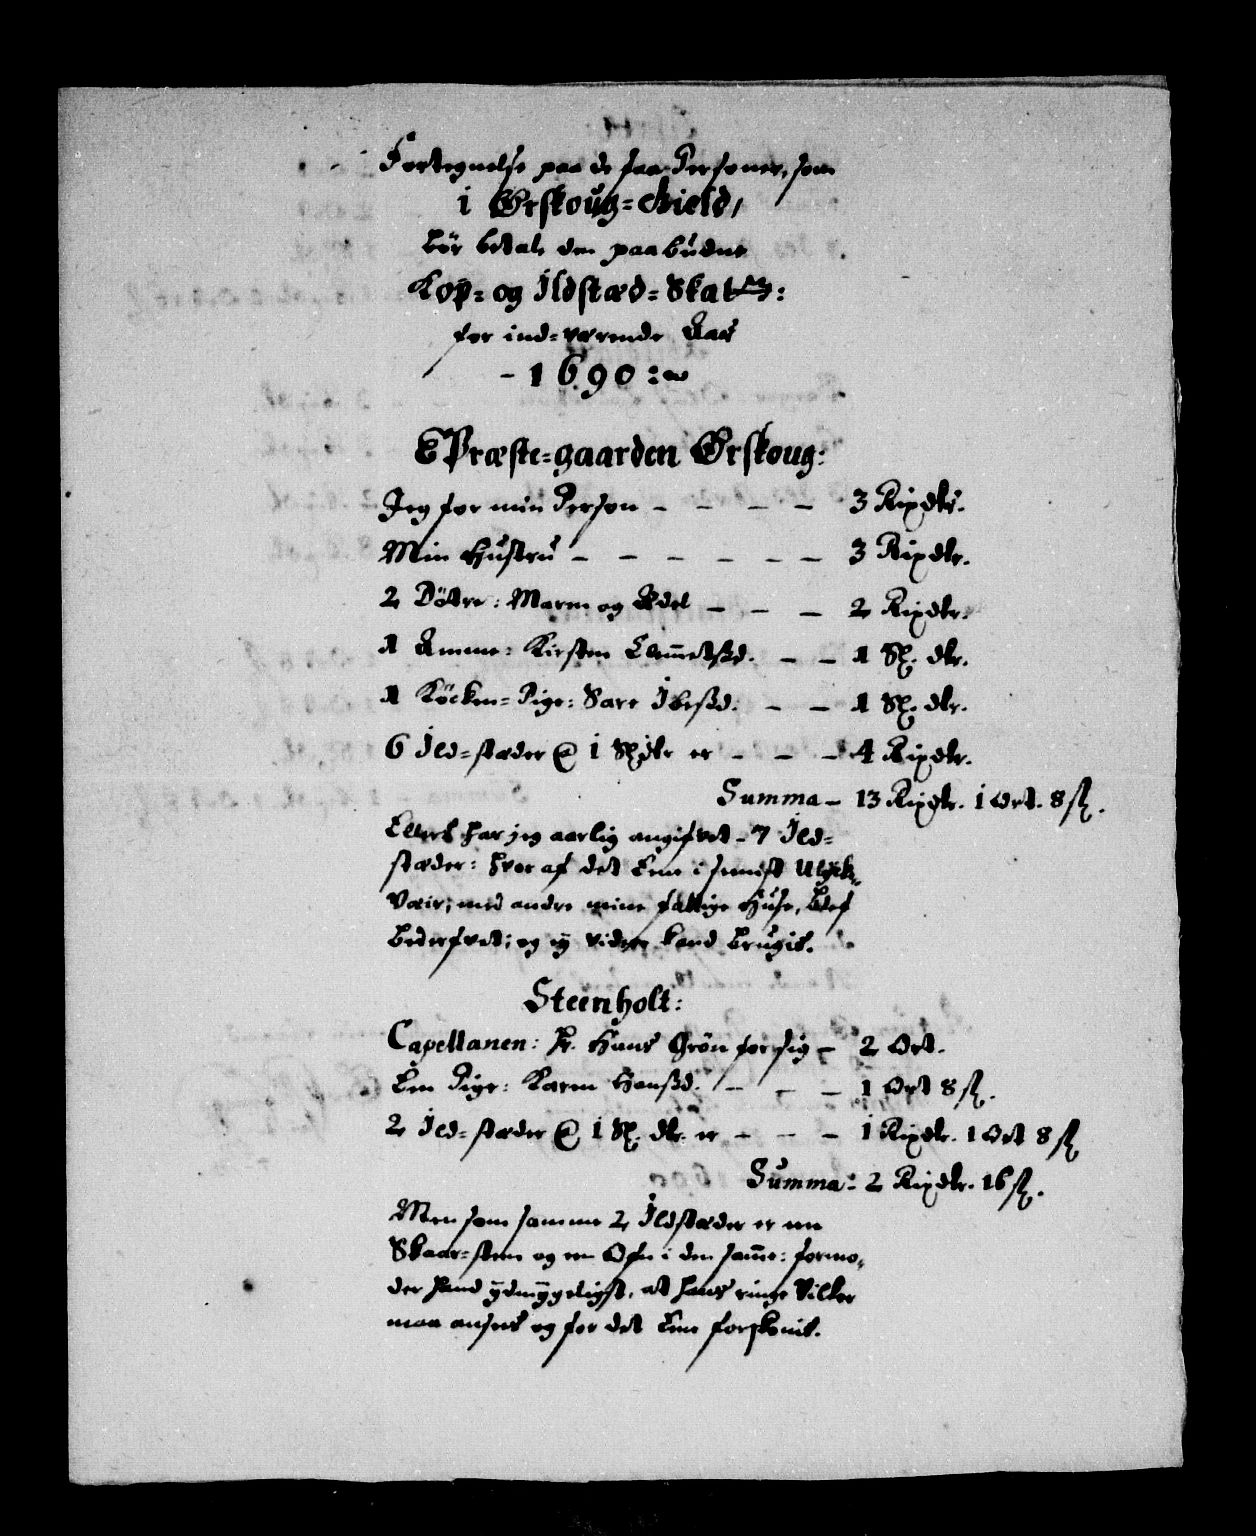 Fortegnelse paa de faa Personer, som
i Ørskoug-Gield,
bör betale den paabudne
Kop- og Ildstæd-Skatter:
for ind-værende Aar
- 1690:
Præste-gaarden Ørskoug:
Jeg for min Person - - - - 3 Rixdlr.
Min Hustru - - - - - - 3 Rixdlr.
2 Döttre: Maren og Edel - - - 2 Rixdlr.
1 Amme: Kirsten Clemetsd. - - 1 Sl. dlr.
1 Köcken-Pige: Sare Ibesd. - - 1 Sl. dlr.
6 Ild-stæder @ 1 Sldlr er - - - 4 Rixdlr.
Summa - 13 Rixdlr. 1 Ort. 8 ß.
Ellers har jeg aarlig angifvet - 7 Ild-
stæder: hvor af det Een i sennist Ulyck-
Væir, med andre mine fattige Huse, blef
bederfvet; og ey videre kand brugis.
Steenholt:
Capellanen: Hr. Hans Grön for sig - 2 Ort.
Een Pige: Karen Hansd. - - - 1 Ort 8 ß.
2 Ild-stæder @ 1 Sl. dlr. er - - - 1 Rixdlr. 1 Ort 8 ß
Summa: 2 Rixdlr. 16 ß.
Men som samme 2 Ildstæder er en
Skaar-steen og en Ofn i den same: formo-
der hand ydmygeligst, at hans ringe Vilkor
maa ansees og for det Een forskonis.